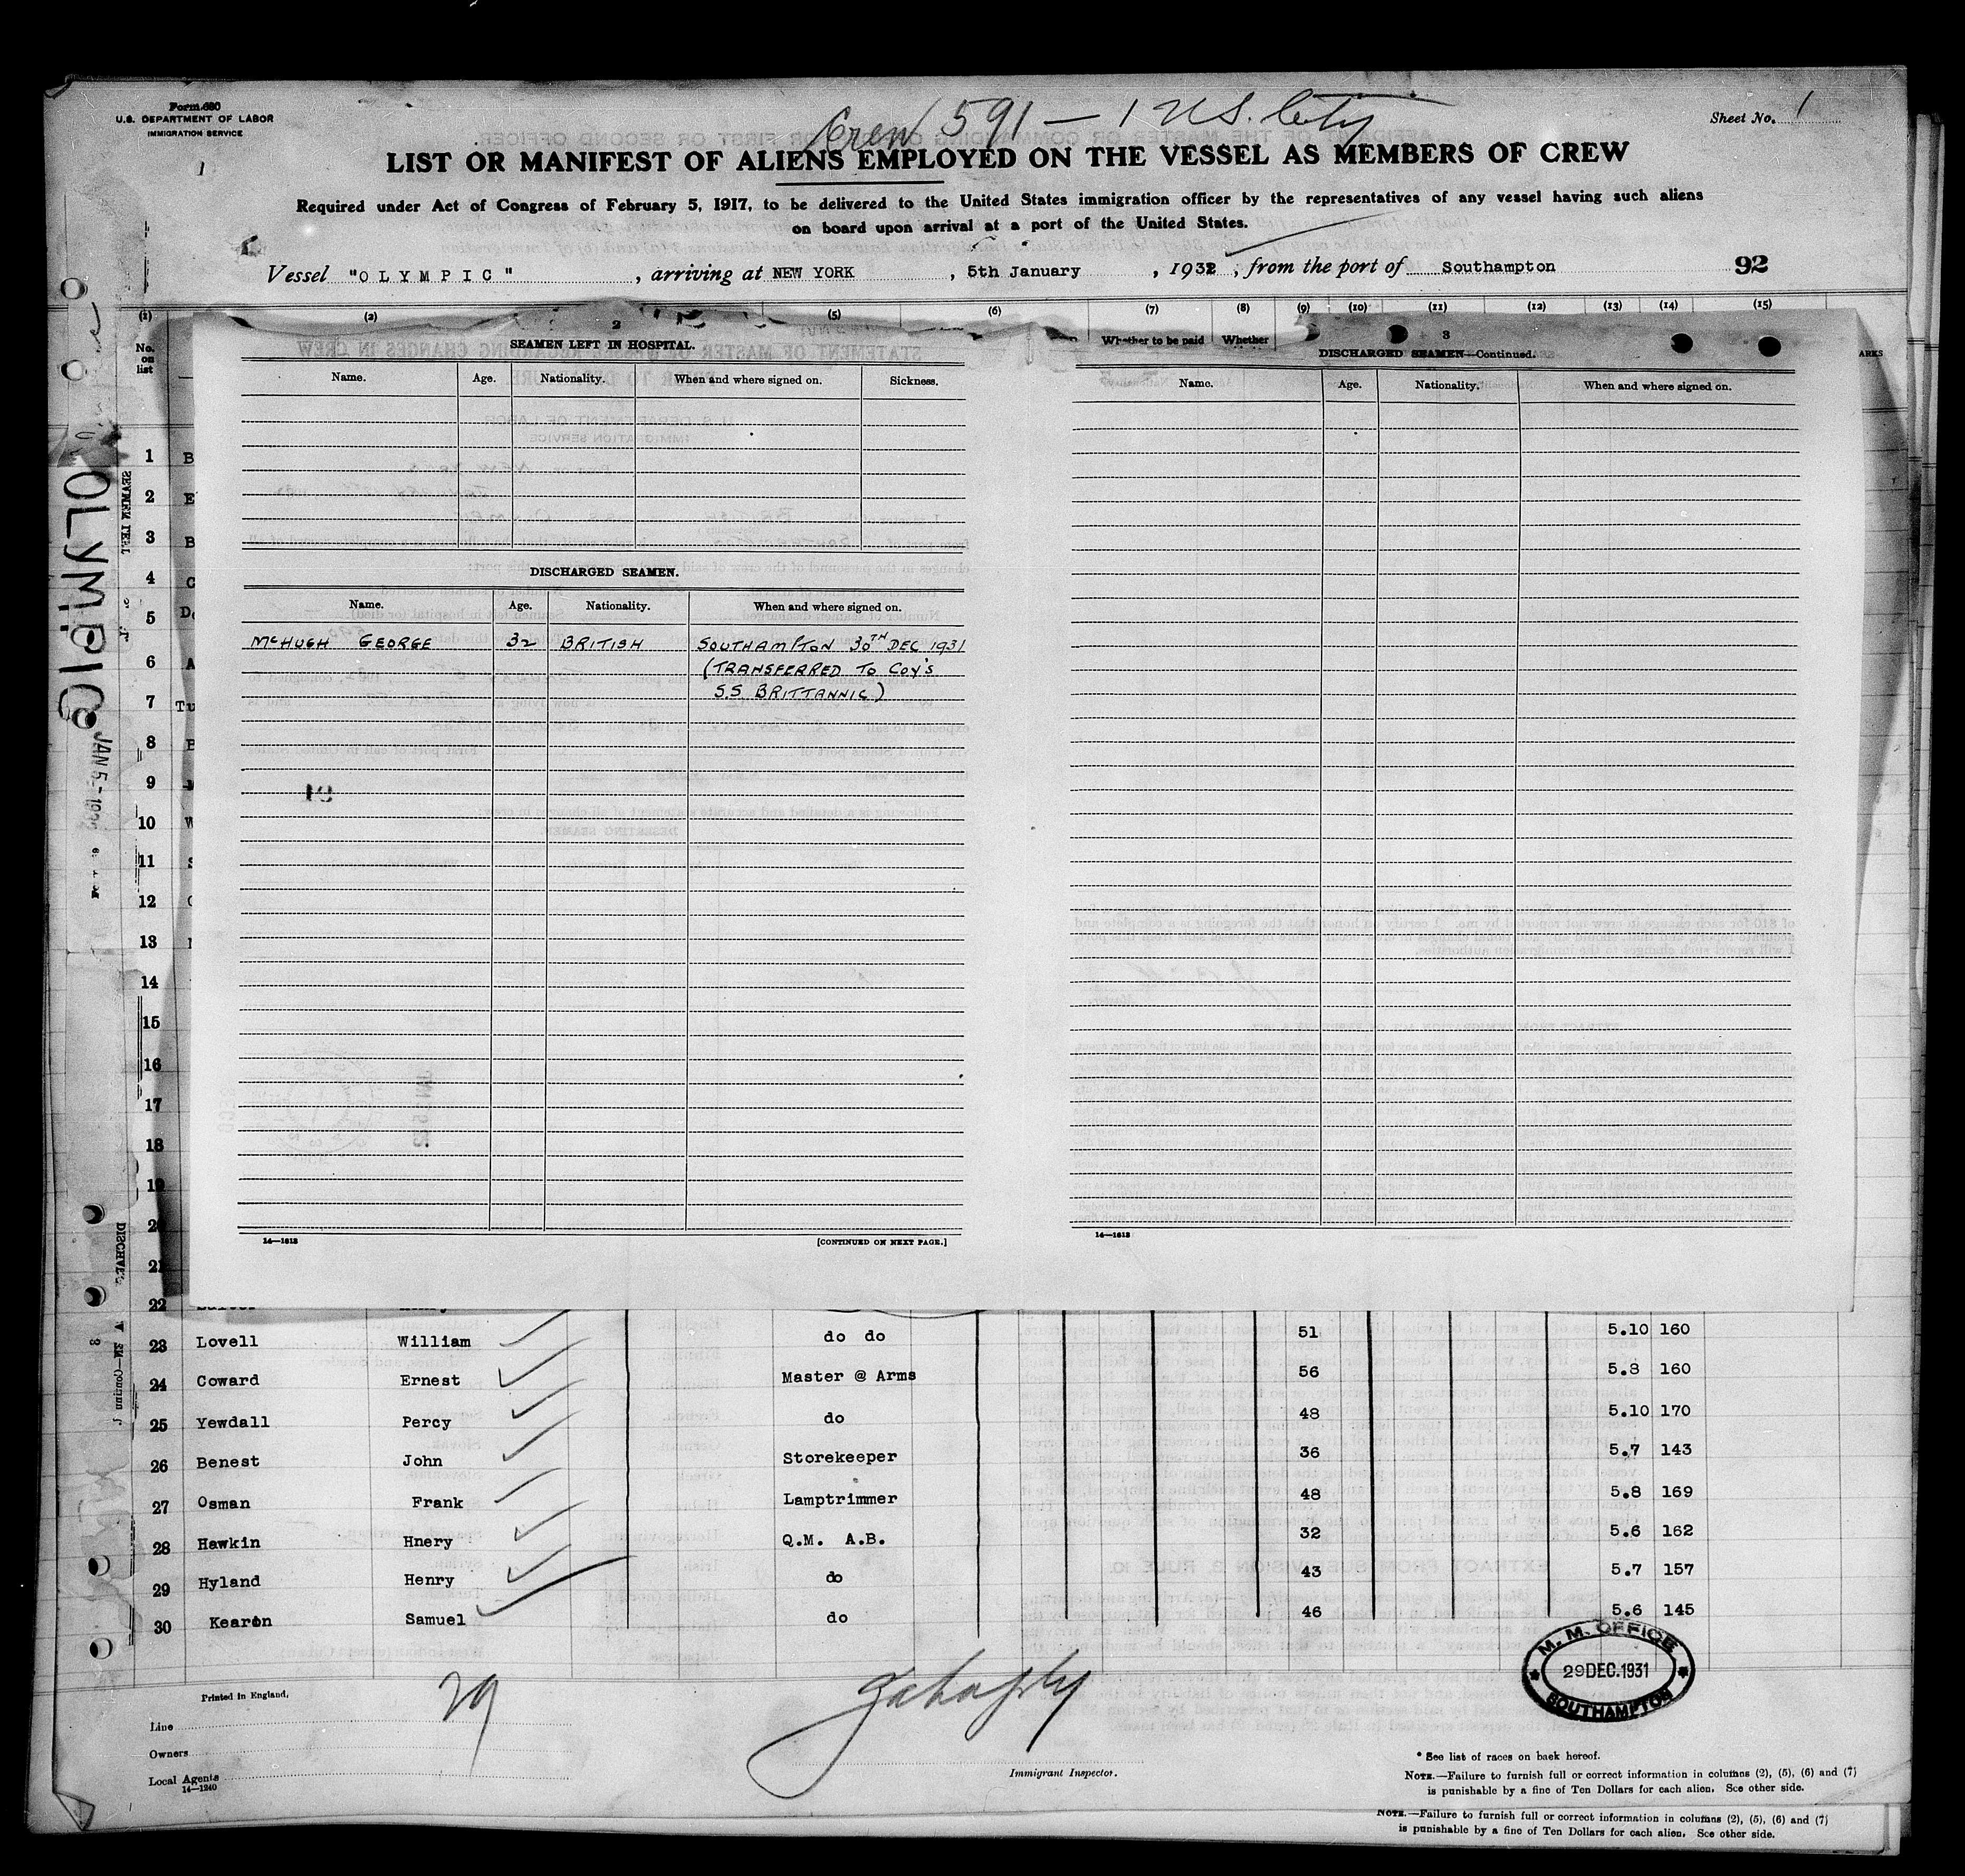 Form 680
U.S. DEPARTMENT OF LABOR
IMMIGRATION SERVICE
1
Crew 591 — 1 U.S.
Sheet No. 1
LIST OR MANIFEST OF ALIENS EMPLOYED ON THE VESSEL AS MEMBERS OF CREW
Required under Act of Congress of February 5, 1917, to be delivered to the United States immigration officer by the representatives of any vessel having such aliens
on board upon arrival at a port of the United States.
Vessel "OLYMPIC", arriving at NEW YORK, 5th January, 1932, from the port of Southampton
92
(1) (2) (5) (6) (7) (8) (9) (10) (11) (12) (13) (14) (15)
No. on list
Whether to be paid Whether
ARKS
2
SEAMEN LEFT IN HOSPITAL.
Name. Age. Nationality. When and where signed on. Sickness.
DISCHARGED SEAMEN.
Name. Age. Nationality. When and where signed on.
McHUGH GEORGE 32 BRITISH SOUTHAMPTON 30TH DEC 1931
(TRANSFERRED TO COY'S
S.S BRITTANNIC)
14—1613
[CONTINUED ON NEXT PAGE.]
3
DISCHARGED SEAMEN—Continued.
Name. Age. Nationality. When and where signed on.
14—1613
OLYMPIC
JAN 5-
1 B
2 E
3 B
4 C
5 De
6 A
7 Tu
8
9
10 W
11 S
12
13
14
15
16
17
18
19
20
21
22
23 Lovell William do do 51 5.10 160
24 Coward Ernest Master @ Arms 56 5.8 160
25 Yewdall Percy do 48 5.10 170
26 Benest John Storekeeper 36 5.7 143
27 Osman Frank Lamptrimmer 48 5.8 169
28 Hawkin Hnery Q.M. A.B. 32 5.6 162
29 Hyland Henry do 43 5.7 157
30 Kearon Samuel do 46 5.6 145
M. M. OFFICE
29 DEC. 1931
SOUTHAMPTON
Printed in England.
29
Line
Owners
Local Agents
14—1240
Immigrant Inspector.
* See list of races on back hereof.
NOTE.—Failure to furnish full or correct information in columns (2), (5), (6) and (7)
is punishable by a fine of Ten Dollars for each alien. See other side.
NOTE.—Failure to furnish full or correct information in columns (2), (5), (6) and (7)
is punishable by a fine of Ten Dollars for each alien. See other side.